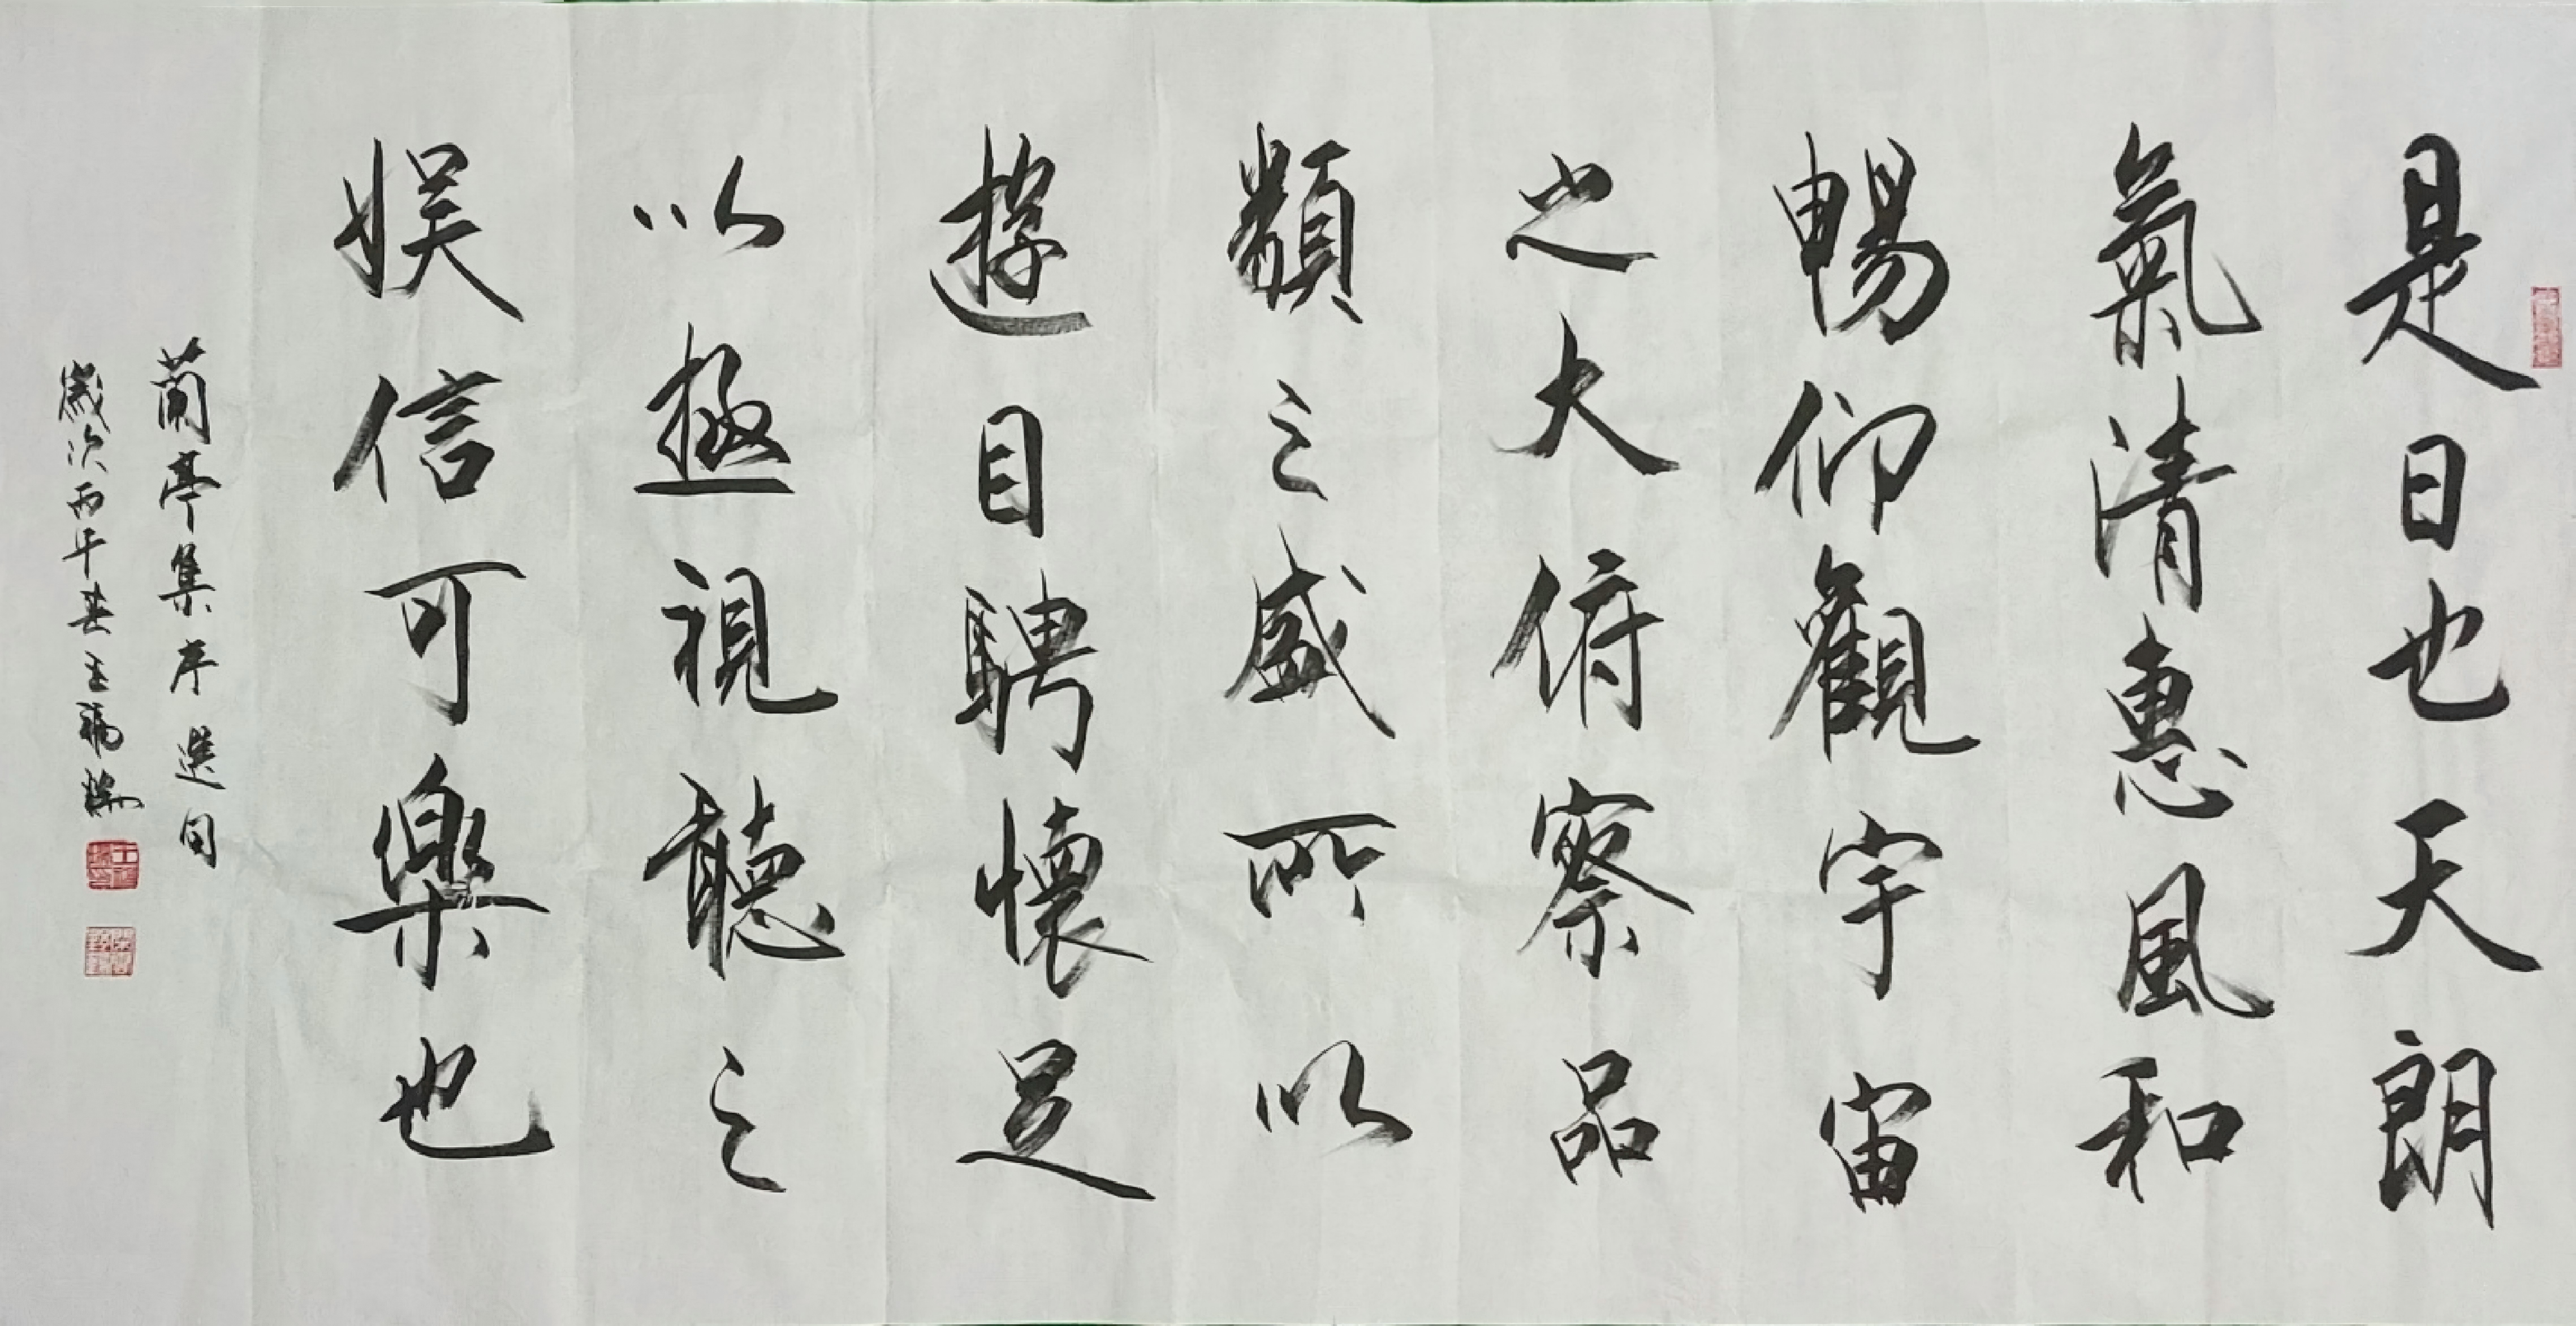 是日也天朗
氣清惠風和
暢仰觀宇宙
之大俯察品
類之盛所以
遊目騁懷足
以極視聽之
娱信可樂也
蘭亭集序選句
歲次丙午春王福